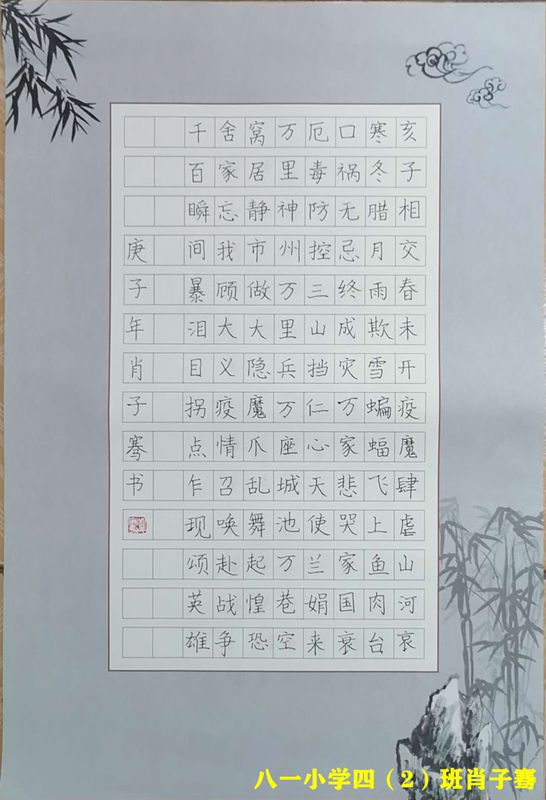 亥子相交春未开疫魔肆虐山河哀
寒冬腊月雨欺雪蝙蝠飞上鱼肉台
口祸无忌终成灾万家悲哭家国衰
厄毒防控三山挡仁心天使兰娟来
万里神州万里兵万座城池万巷空
窝居静市做大隐魔爪乱舞起惶恐
舍家忘我顾大义疫情召唤赴战争
千百瞬间暴泪目拐点乍现颂英雄
庚子年肖子骞书
八一小学四（2）班肖子骞